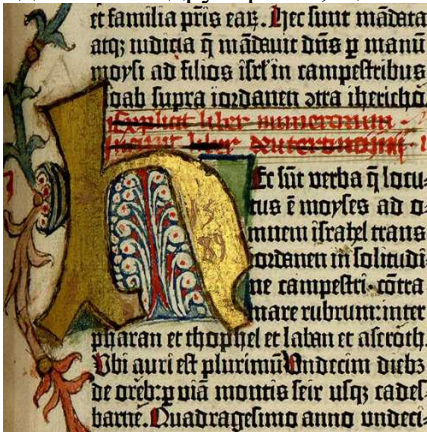 et familia pr̄is eaꝝ. Hec sunt mādata
atqꝫ iudicia q̄ mādauit dn̄s ꝑ manū
moysi ad filios isrl̄ in campestribus
moab supra iordanen ɔtra ihericho.
Explicit liber numerorum.
Incipit liber deuteronomii.
Hec sūt verba q̄ locu-
tus ē moyses ad o-
mnem israhel trans
iordanen in solitudi-
ne campestri · cōtra
mare rubrum: inter
pharan et thophel et laban et aseroth.
Vbi auri est plurimū Vndecim diebꝫ
de oreb: ꝑ viā montis seir usqꝫ cades-
barne. Quadragesimo anno undeci-